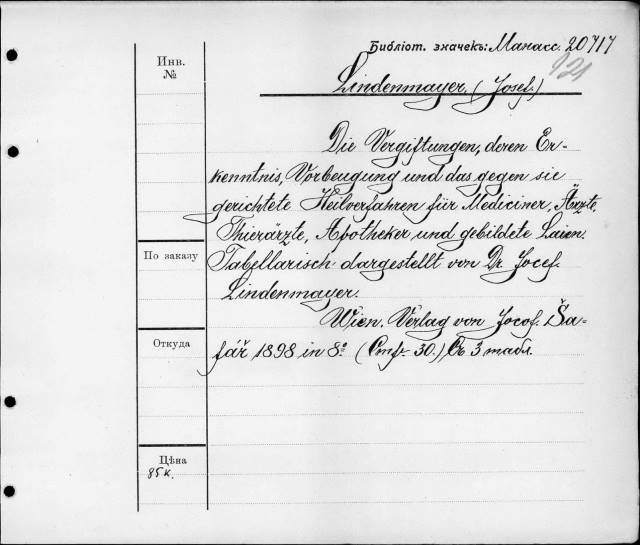 Библіот. значекъ: Манасс. 20717
121
Инв.
№
Lindenmayer, (Josef.)
Die Vergiftungen, deren Er-
kenntnis, Vorbeugung und das gegen sie
gerichtete Heilverfahren für Mediciner, Ärzte,
Thierärzte, Apotheker und gebildete Laien.
По заказу
Tabellarisch dargestellt von Dr. Josef.
Lindenmayer.
Wien. Verlag von Josef. Ša-
Откуда
fář 1898 in 8° (Стр. 30.) Съ 3 табл.
Цѣна
85к.